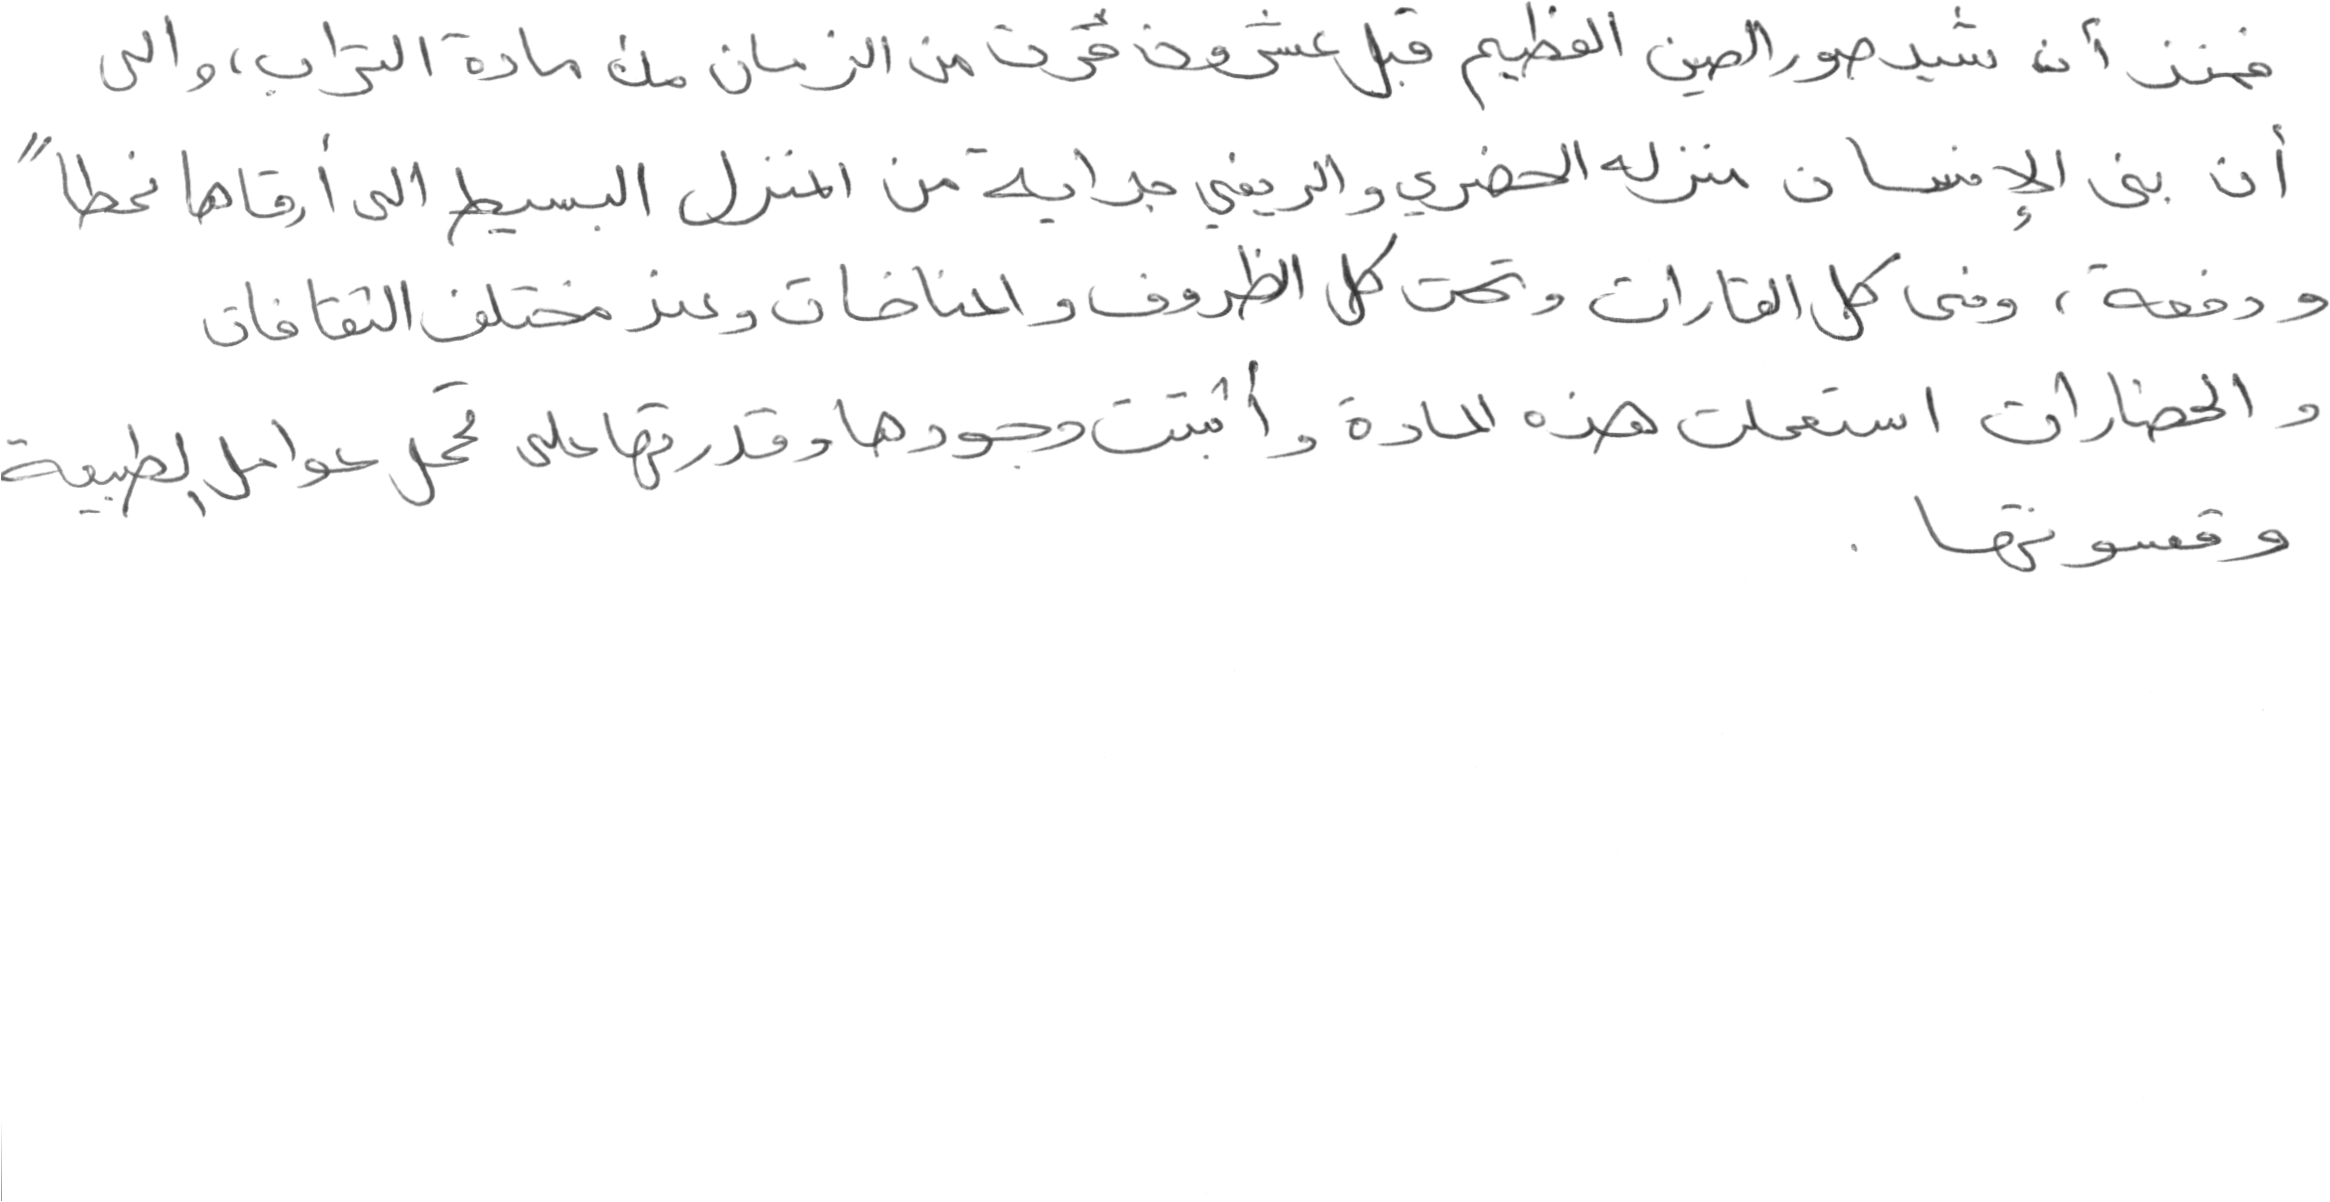 فمنذ أن شيد صور الصين العظيم قبل عشرون قرن من الزمان من مادة التراب، والى
أن بنى الإنسان منزله الحضري والريفي بداية من المنزل البسيط الى أرقاها نمطا"
ودفعة، وفى كل القارات وتحت كل الظروف والمناخات وعند مختلف الثقافات
والحضارات استعملت هذه المادة وأثبتت وجودها وقدرتها على تحمل عوامل الطبيعة
وقسوتها.